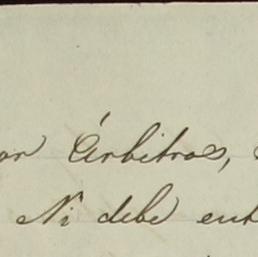 or Árbitros,
Ni debe ent